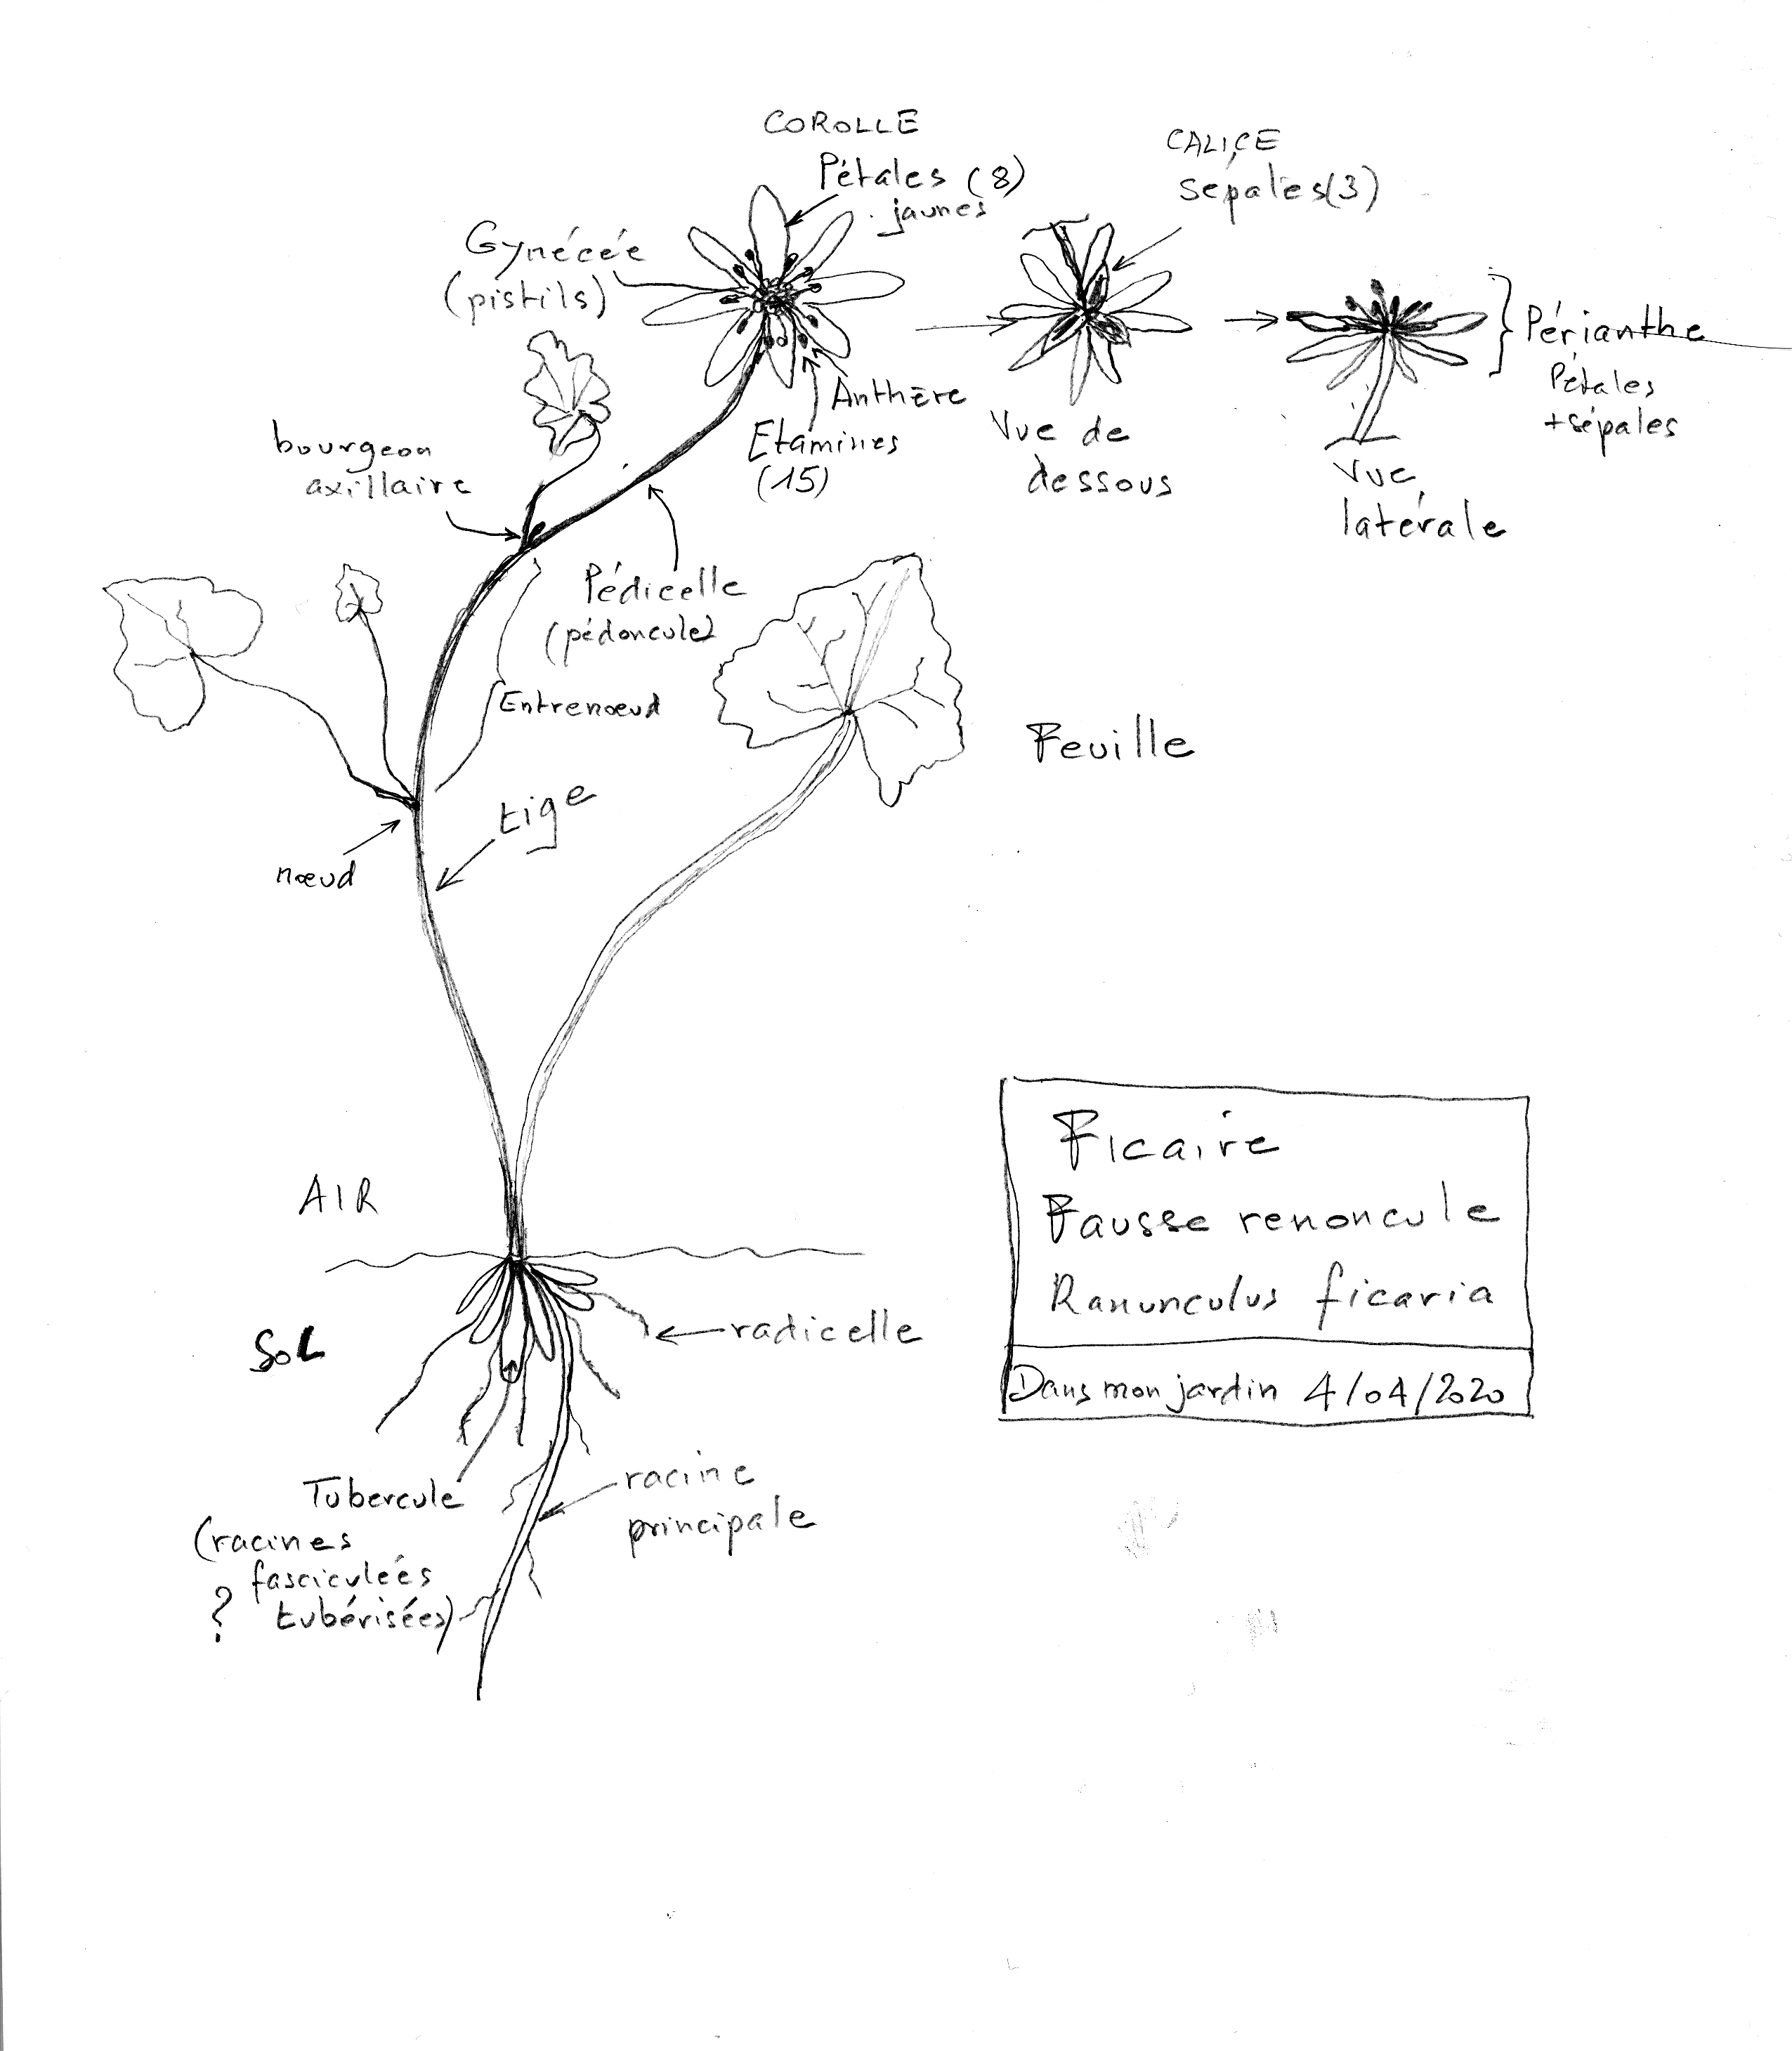 COROLLE
Pétales (8)
jaunes
CALICE
sépales (3)
Gynécée
(pistils)
Périanthe
Pétales
+sépales
Anthère
Etamines
(15)
Vue de
dessous
Vue
latérale
bourgeon
axillaire
Pédicelle
(pédoncule)
Entrenœud
Feuille
tige
nœud
AIR
SOL
radicelle
Tubercule
(racines
fasciculées
? tubérisées)
racine
principale
Ficaire
Fausse renoncule
Ranunculus ficaria
Dans mon jardin 4/04/2020